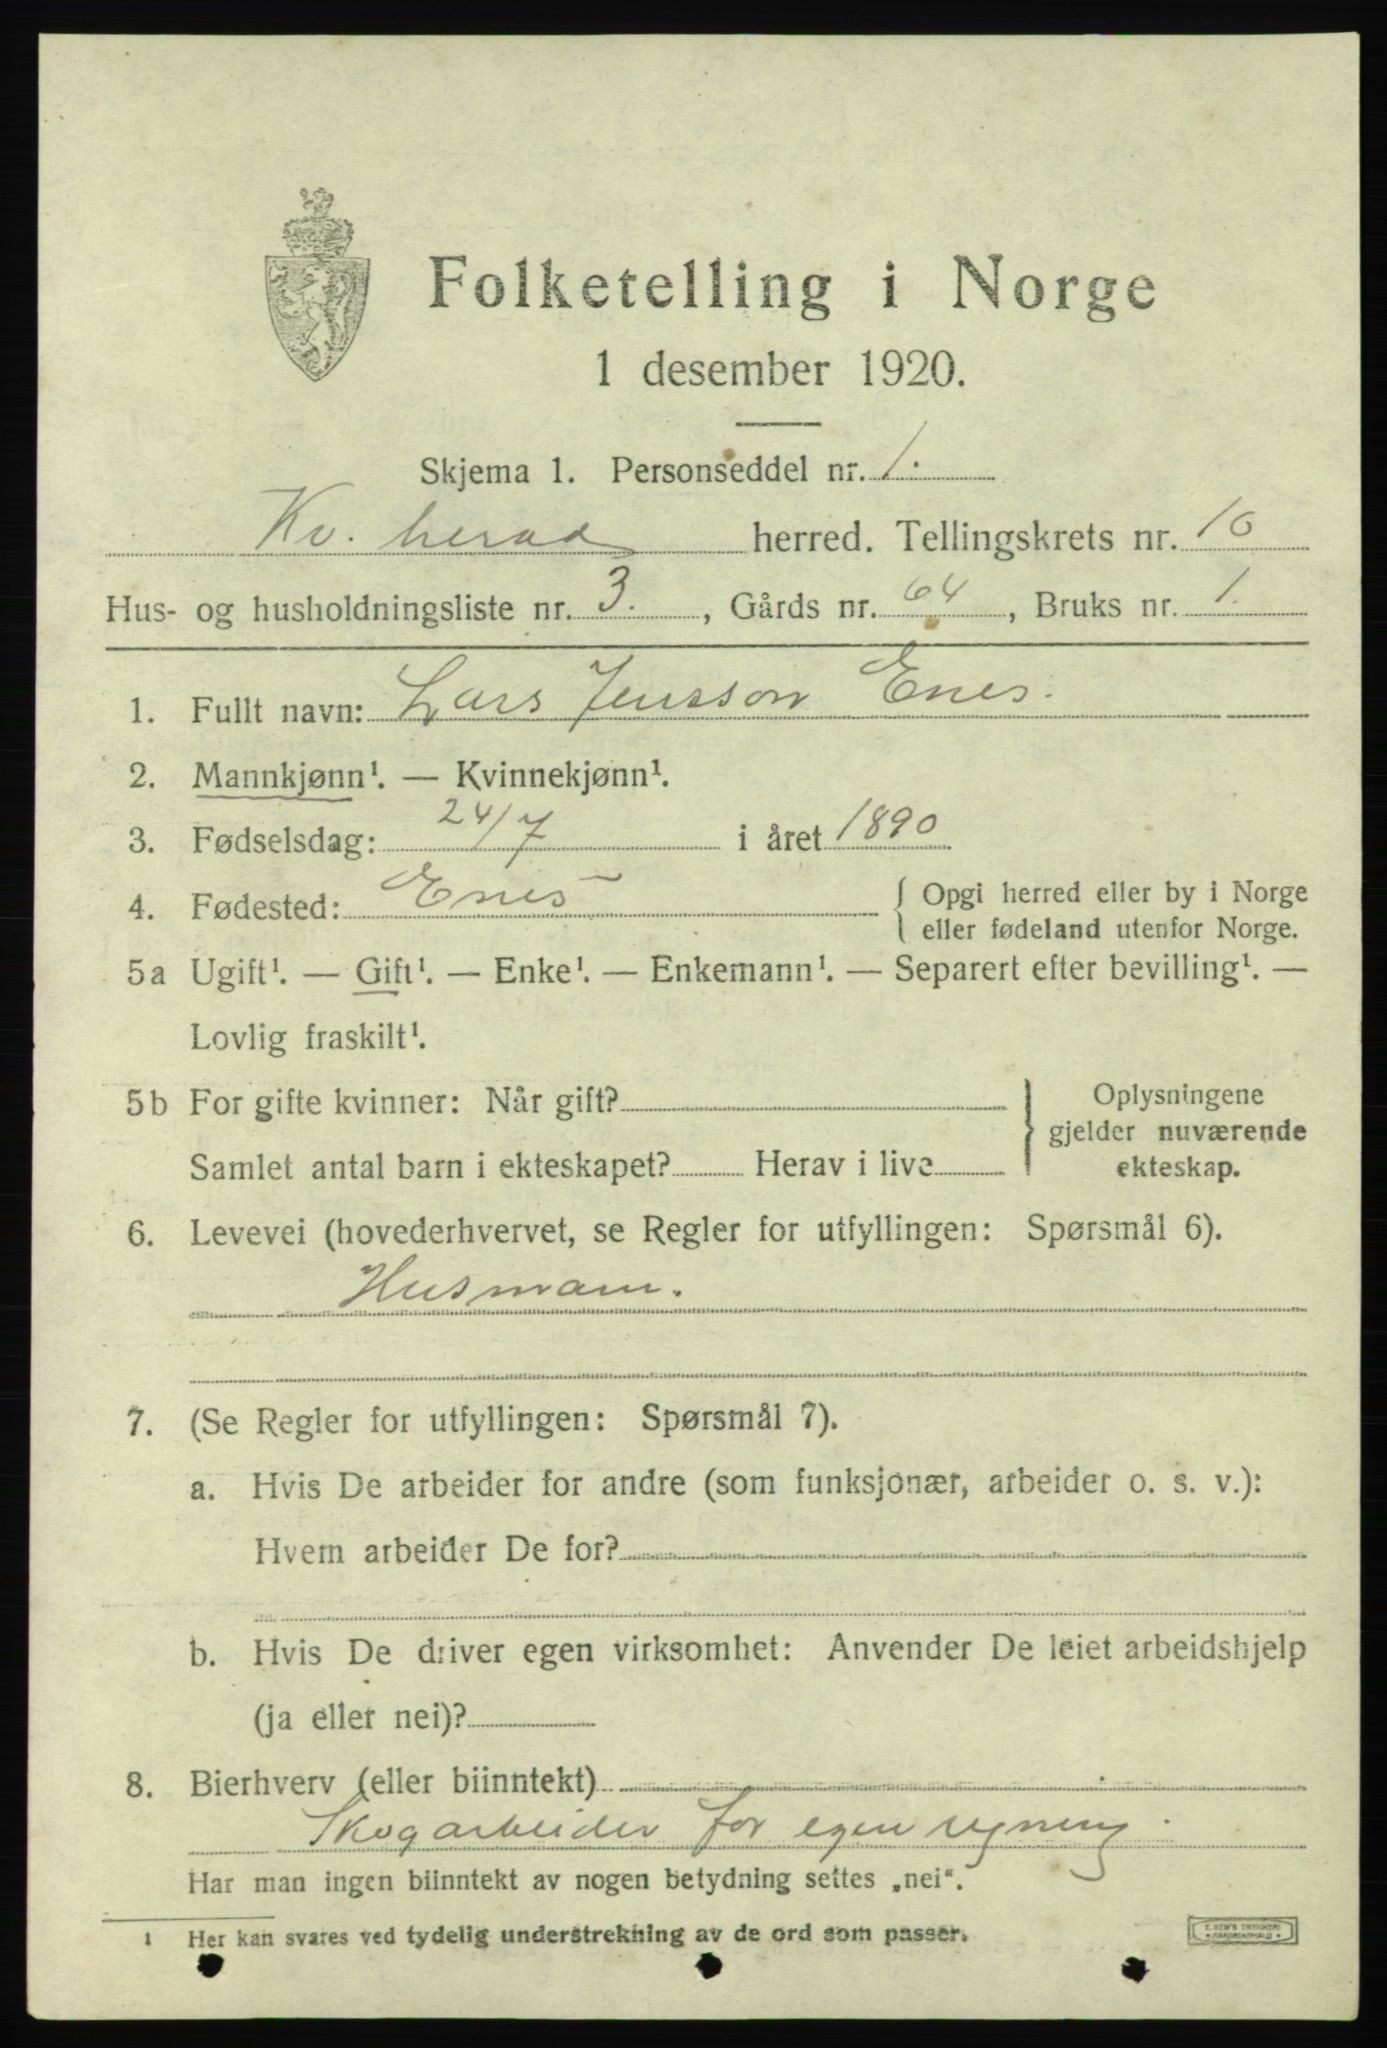 Folketelling i Norge
1 desember 1920.
Skjema 1. Personseddel nr. 1.
Kv. herad herred. Tellingskrets nr. 10
Hus- og husholdningsliste nr. 3., Gårds nr. 64, Bruks nr. 1.
1. Fullt navn: Lars Jensson Enes.
2. Mannkjønn¹. — Kvinnekjønn¹.
3. Fødselsdag: 24/7 i året 1890
4. Fødested: Enes { Opgi herred eller by i Norge
eller fødeland utenfor Norge.
5a Ugift¹. — Gift¹. — Enke¹. — Enkemann¹. — Separert efter bevilling¹. —
Lovlig fraskilt¹.
5b For gifte kvinner: Når gift? } Oplysningene
gjelder nuværende
ekteskap.
Samlet antal barn i ekteskapet? Herav i live
6. Levevei (hovederhvervet, se Regler for utfyllingen: Spørsmål 6).
Husmann.
7. (Se Regler for utfyllingen: Spørsmål 7).
a. Hvis De arbeider for andre (som funksjonær, arbeider o. s. v.):
Hvem arbeider De for?
b. Hvis De driver egen virksomhet: Anvender De leiet arbeidshjelp
(ja eller nei)?
8. Bierhverv (eller biinntekt)
Skogarbeider for egen regning.
Har man ingen biinntekt av nogen betydning settes „nei“.
1 Her kan svares ved tydelig understrekning av de ord som passer.